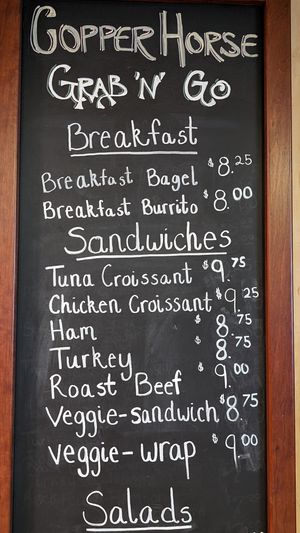 COPPER HORSE
GRAB 'N' GO
Breakfast
Breakfast Bagel $8.25
Breakfast Burrito $8.00
Sandwiches
Tuna Croissant $9.75
Chicken Croissant $9.25
Ham $8.75
Turkey $8.75
Roast Beef $9.00
Veggie-sandwich $8.75
veggie-wrap $9.00
Salads